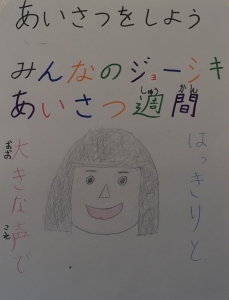 あいさつをしよう
みんなのジョーシキ
あいさつ週間
しゅうかん
はっきりと
大きな声で
おお
こえ